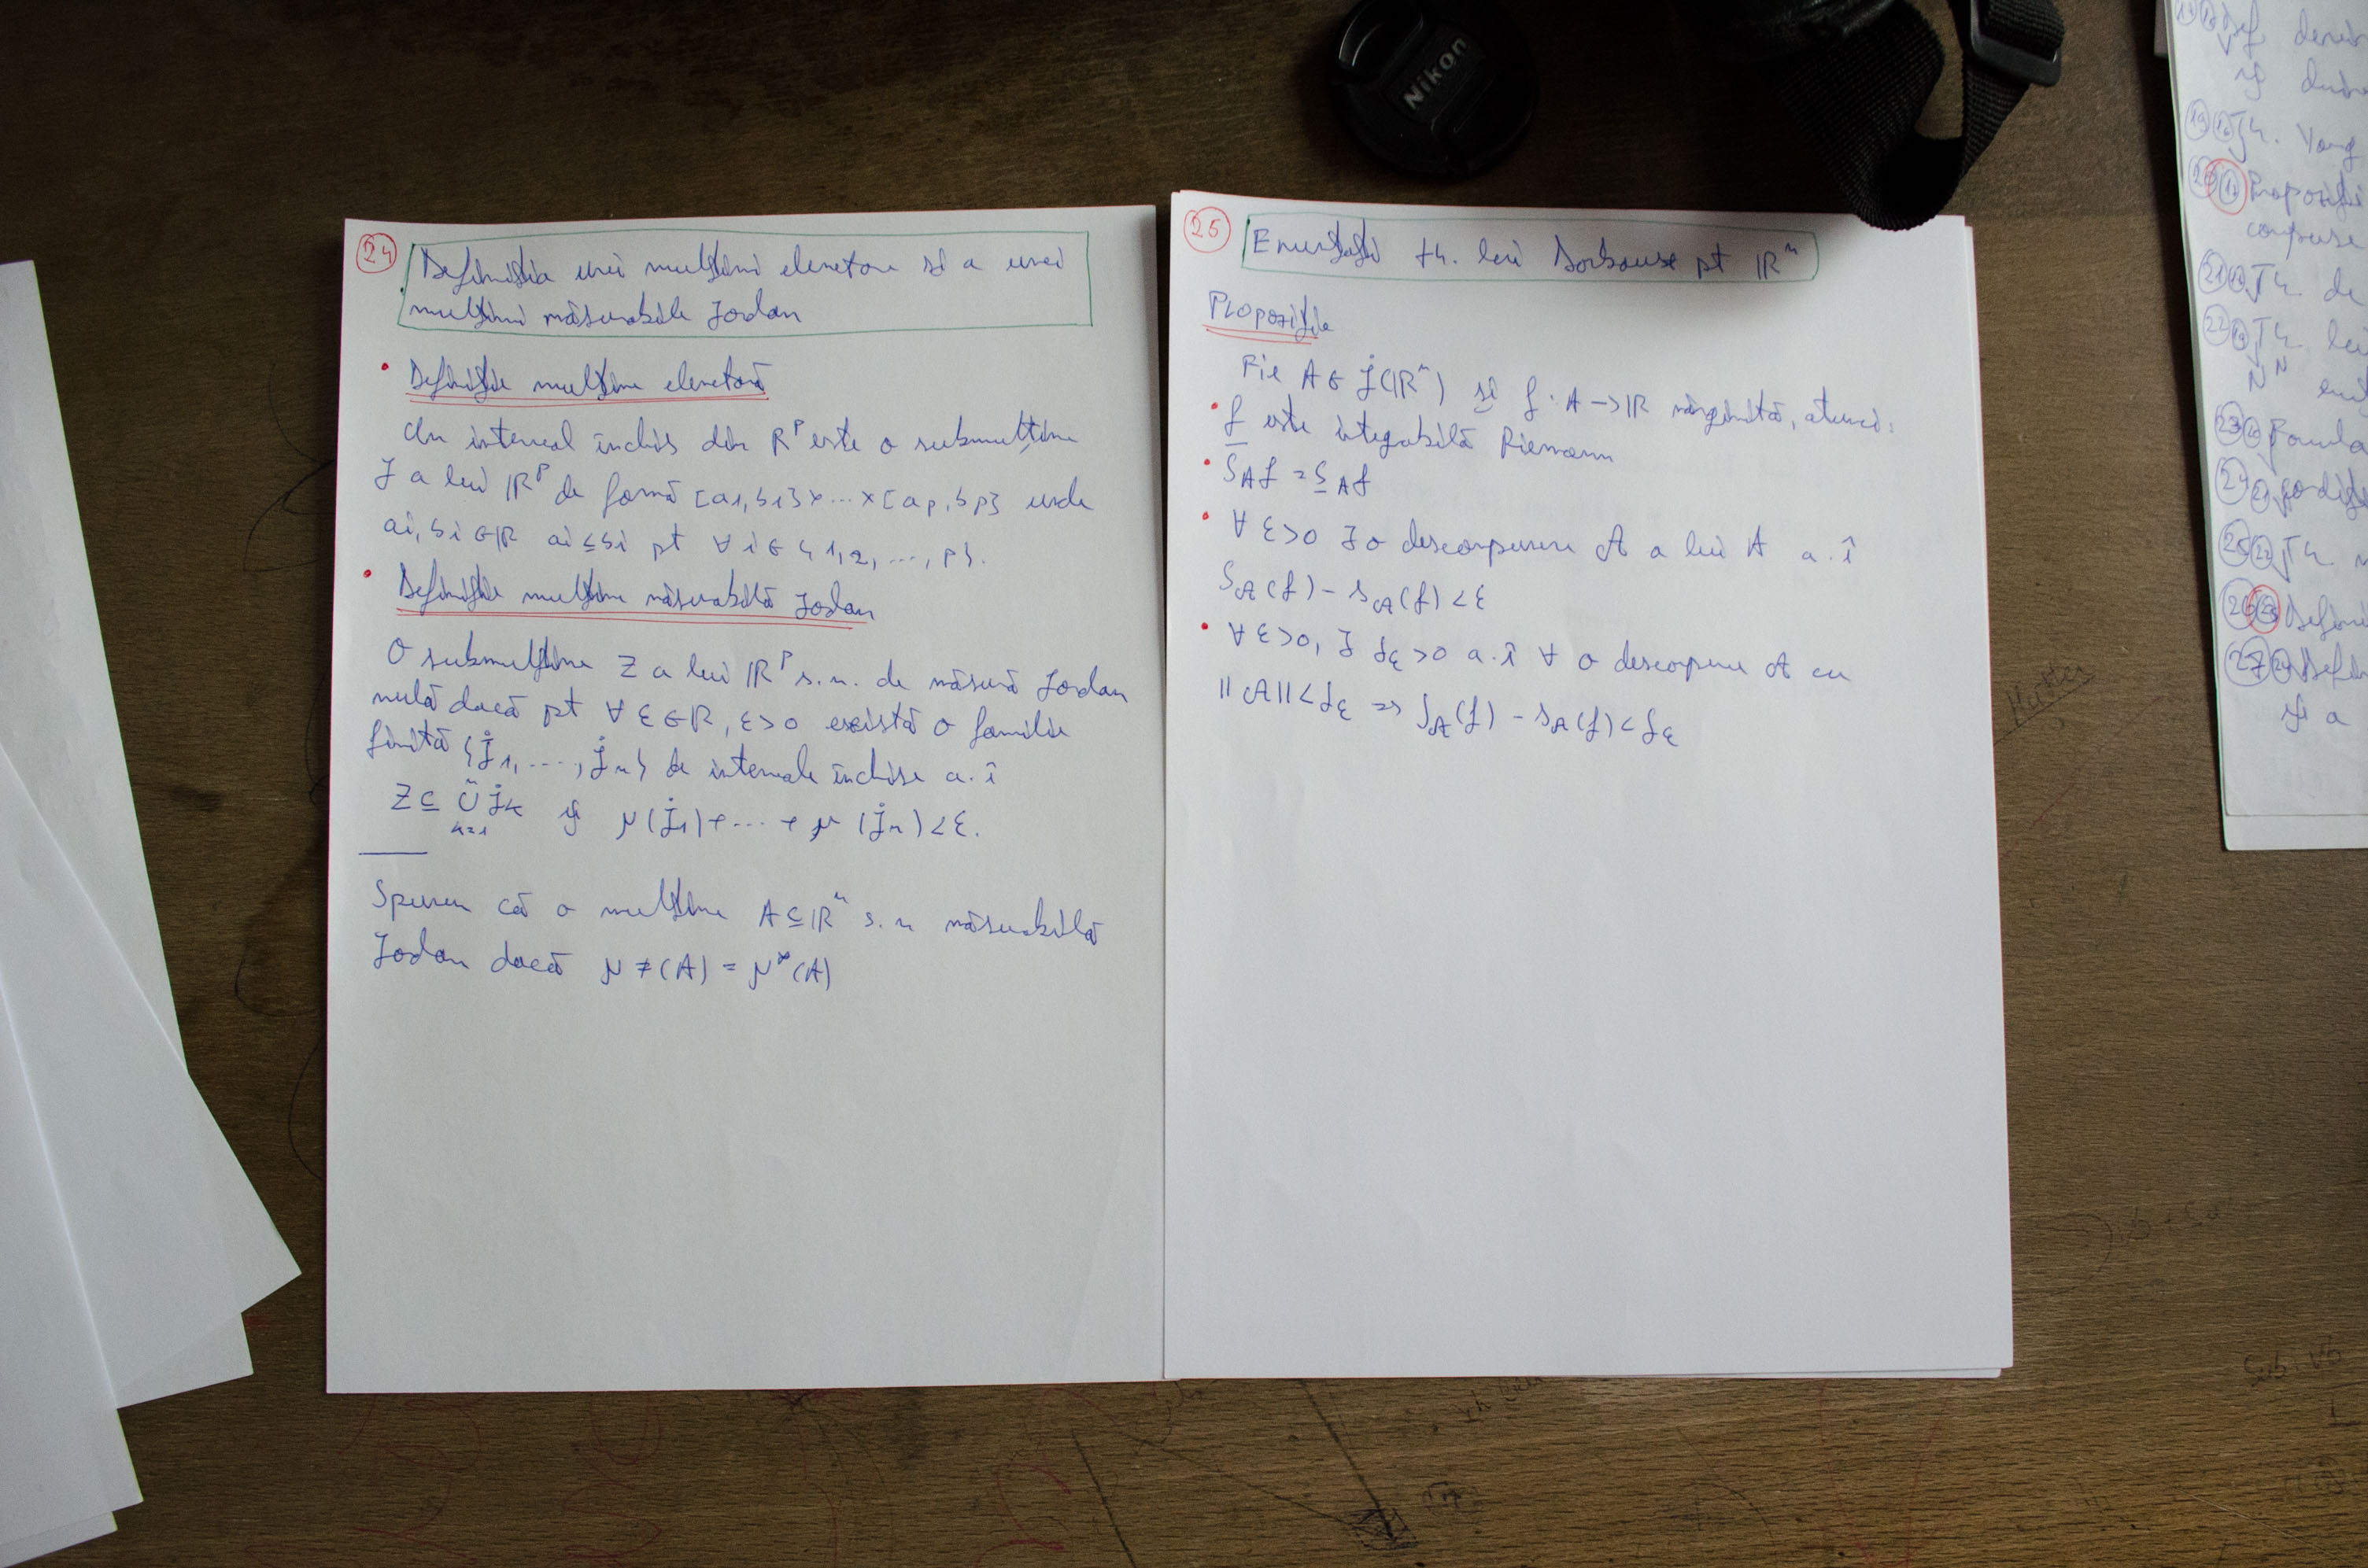 Nikon
24
Definiția unei mulțimi elemetare și a unei
mulțimi măsurabile Jordan
• Definiție mulțime elemetară
Un interval închis din R^p este o submulțime
J a lui ℝ^p de formă [a1,b1]×...×[ap,bp] unde
ai,bi∈ℝ ai≤bi pt ∀ i∈{1,2,...,p}.
• Definiție mulțime măsurabilă Jordan
O submulțime Z a lui ℝ^p s.n. de măsură Jordan
nulă dacă pt ∀ ε∈ℝ, ε>0 există o familie
finită {J1,....,Jn} de intervale închise a.î
Z⊆ ∪ Jk și μ(J1)+...+μ(Jn)<ε.
k=1
Spunem că o mulțime A⊆ℝ^n s.n măsurabilă
Jordan dacă μ*(A) = μ*(A)
25
Enunțați th. lui Darboux pt ℝ^n
Propoziție
Fie A∈J(ℝ^n) și f: A→ℝ mărginită, atunci:
• f este integrabilă Riemann
• S̄_A f = S̲_A f
• ∀ ε>0 ∃ o descompunere 𝒜 a lui A a.î
S_𝒜(f) - s_𝒜(f) < ε
• ∀ ε>0, ∃ δ_ε>0 a.î ∀ o descompune 𝒜 cu
||𝒜||<δ_ε => S_𝒜(f) - s_𝒜(f) < δ_ε
Def
și
19 Th. Yang
Propoziție
compuse
21 Th. de
22 Th. lui
23 Formula
24
25 Th.
26
27
și a